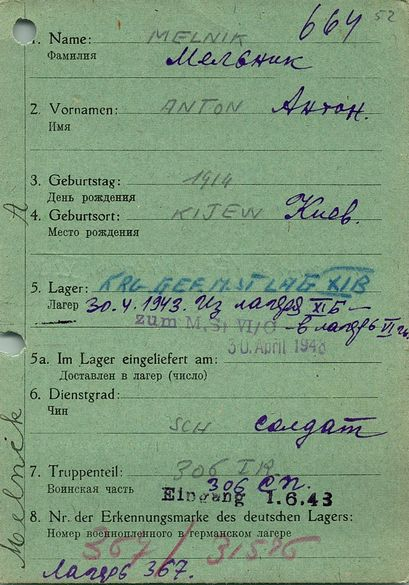 664 52
1. Name: MELNIK
Фамилия Мельник
2. Vornamen: ANTON Антон.
Имя
3. Geburtstag: 1914
День рождения
4. Geburtsort: KIJEW Киев.
Место рождения
5. Lager: KRG GEF M.ST LAG XIB
Лагерь 30.4.1943. Из лагеря XIБ –
zum M.St VI/G – в лагерь VI
30. April 1943
5a. Im Lager eingeliefert am:
Доставлен в лагерь (число)
6. Dienstgrad:
Чин
SCH солдат
7. Truppenteil: 306 IR
Воинская часть 306 СП.
Eingang 1.6.43
8. Nr. der Erkennungsmarke des deutschen Lagers:
Номер военнопленного в германском лагере
367/31586
Лагерь 367.
Melnik A